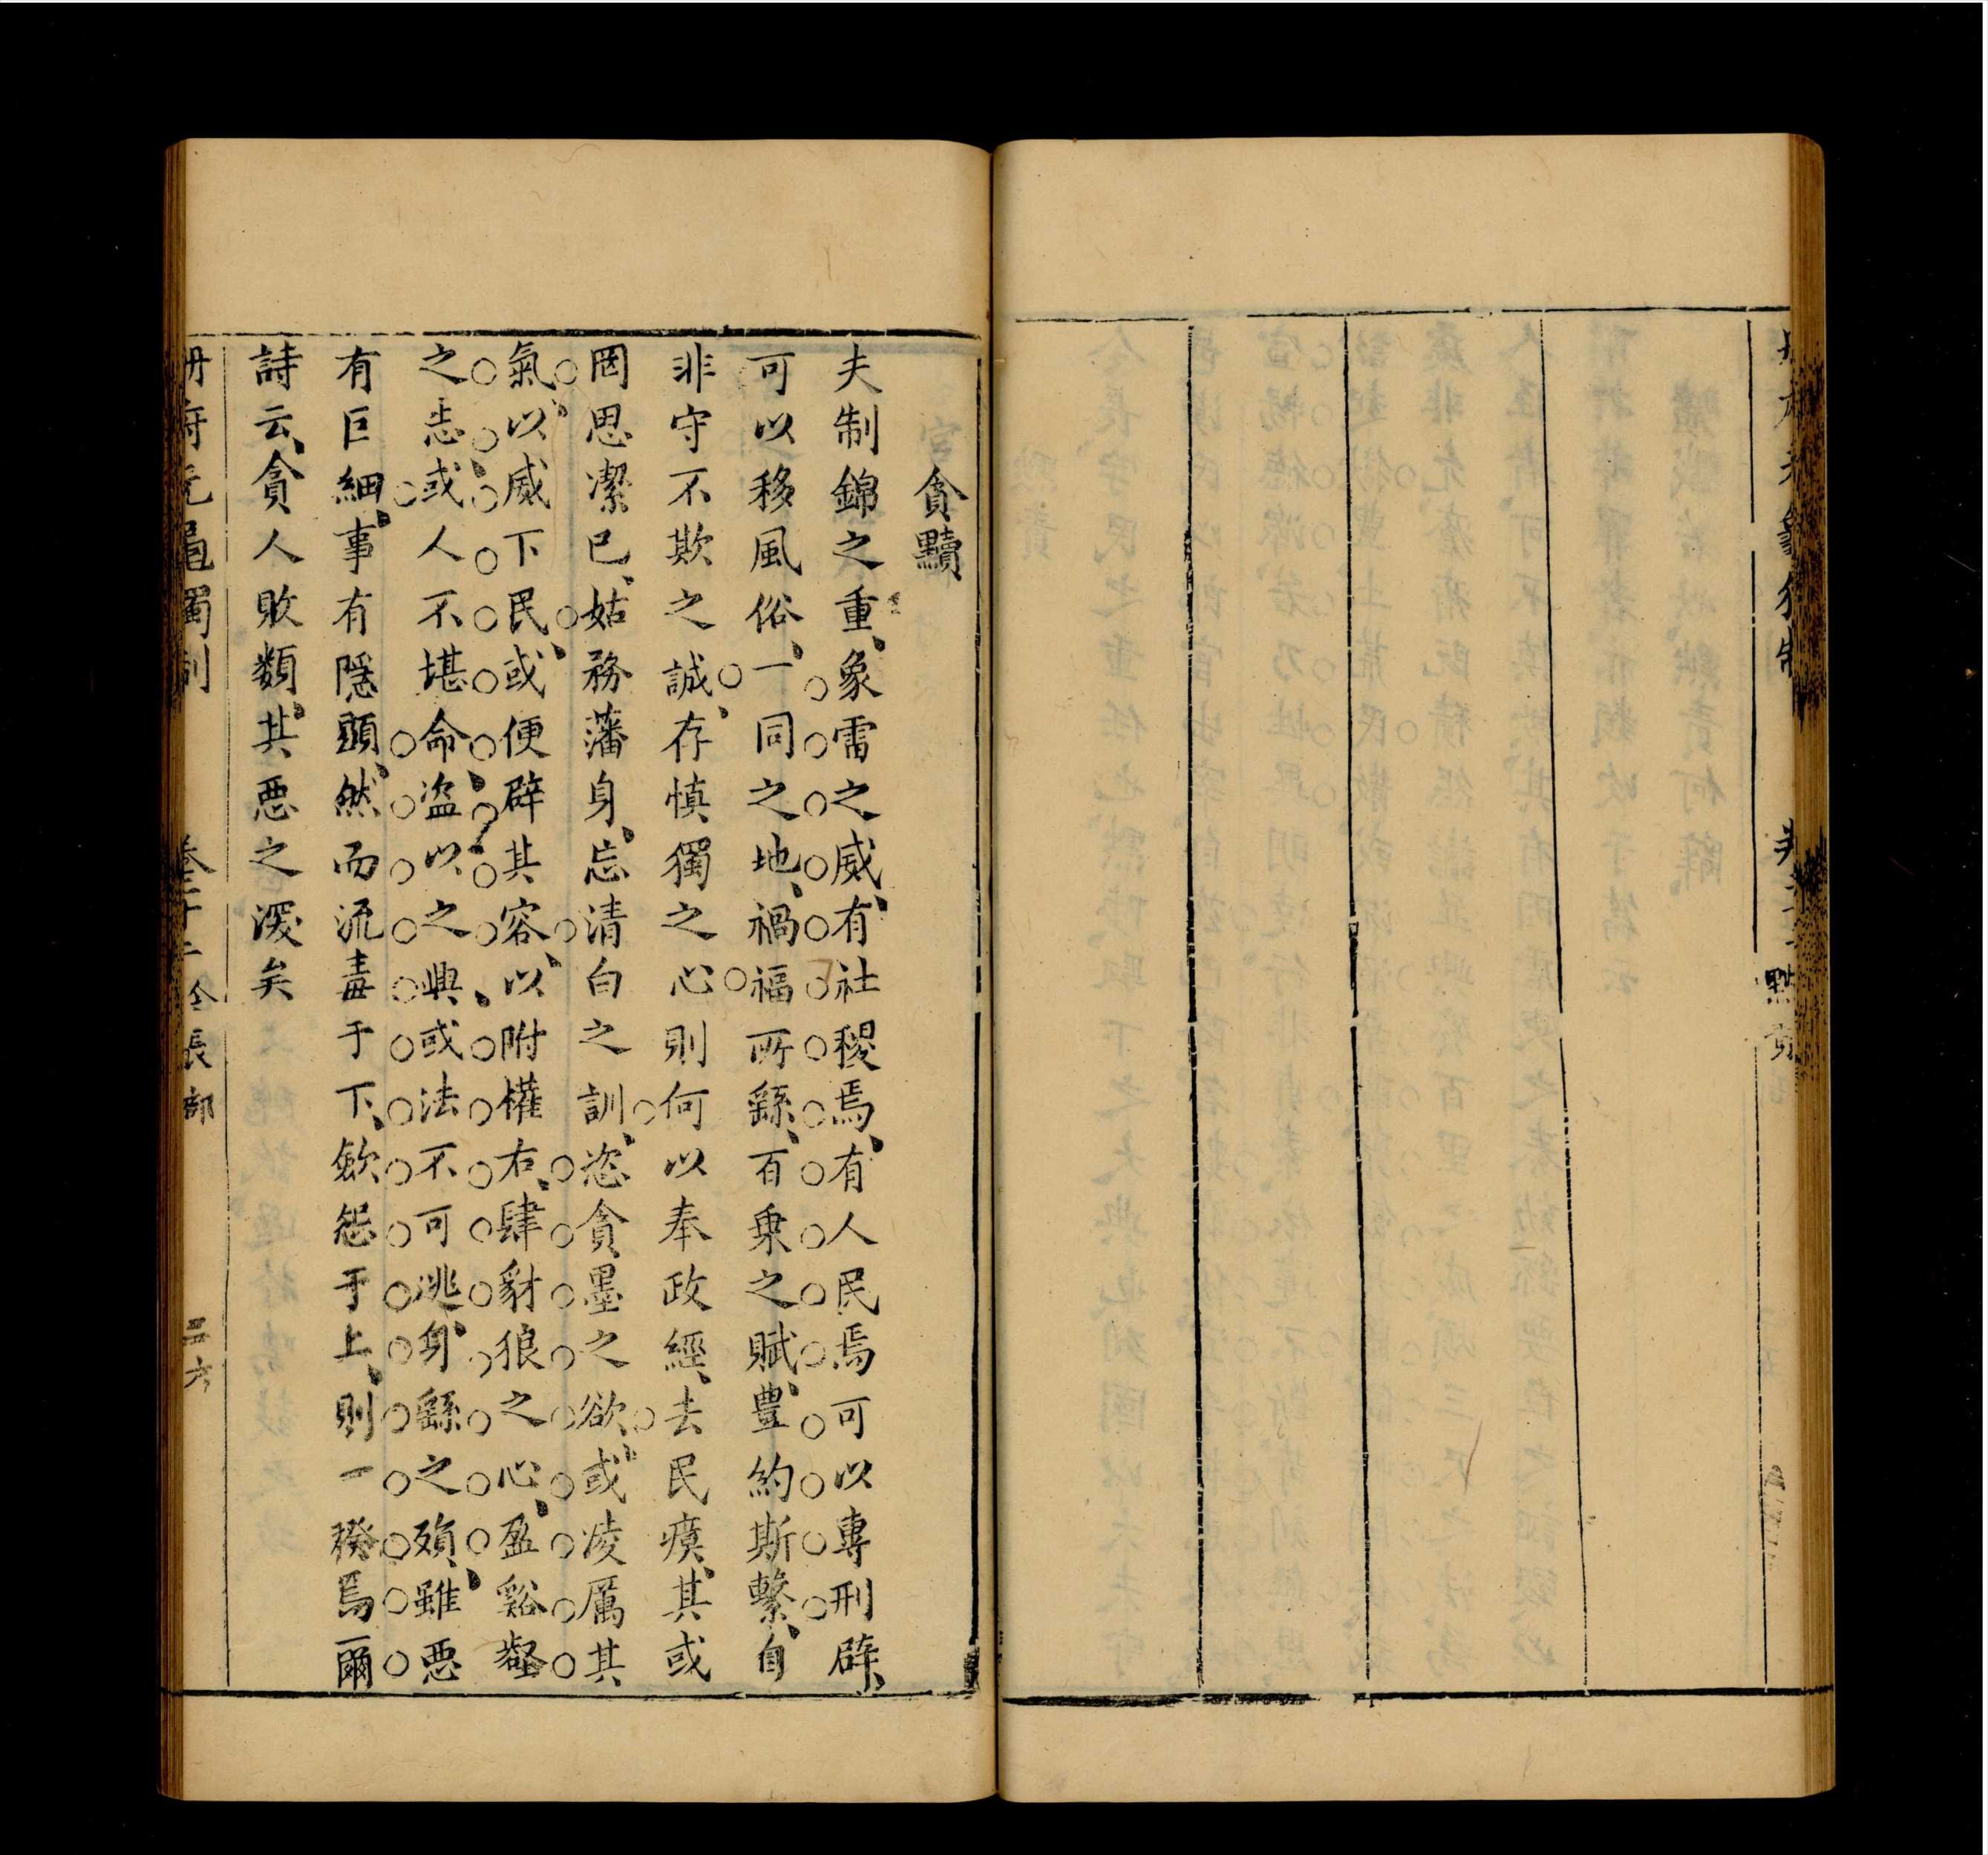 貪黷
夫制錦之重、象雷之威、有社稷焉、有人民焉可以專刑辟、
可以移風俗、一同之地、禍福所繇、百乗之賦、豊約斯繫、自
非守不欺之誠、存慎獨之心則何以奉政經、去民瘼、其或
罔思潔已、姑務藩身、忘清白之訓、恣貪墨之欲、或凌厲其
氣、以威下民、或便辟其容、以附權右、肆豺狼之心、盈谿壑
之志、或人不堪命、盗以之興、或法不可逃、身繇之殞、雖悪
有巨細、事有隱顕、然而流毒于下、歛怨于上、則一揆焉爾
詩云、貪人敗類、其悪之深矣
冊府元龜獨制
卷三十二
令長部
三六